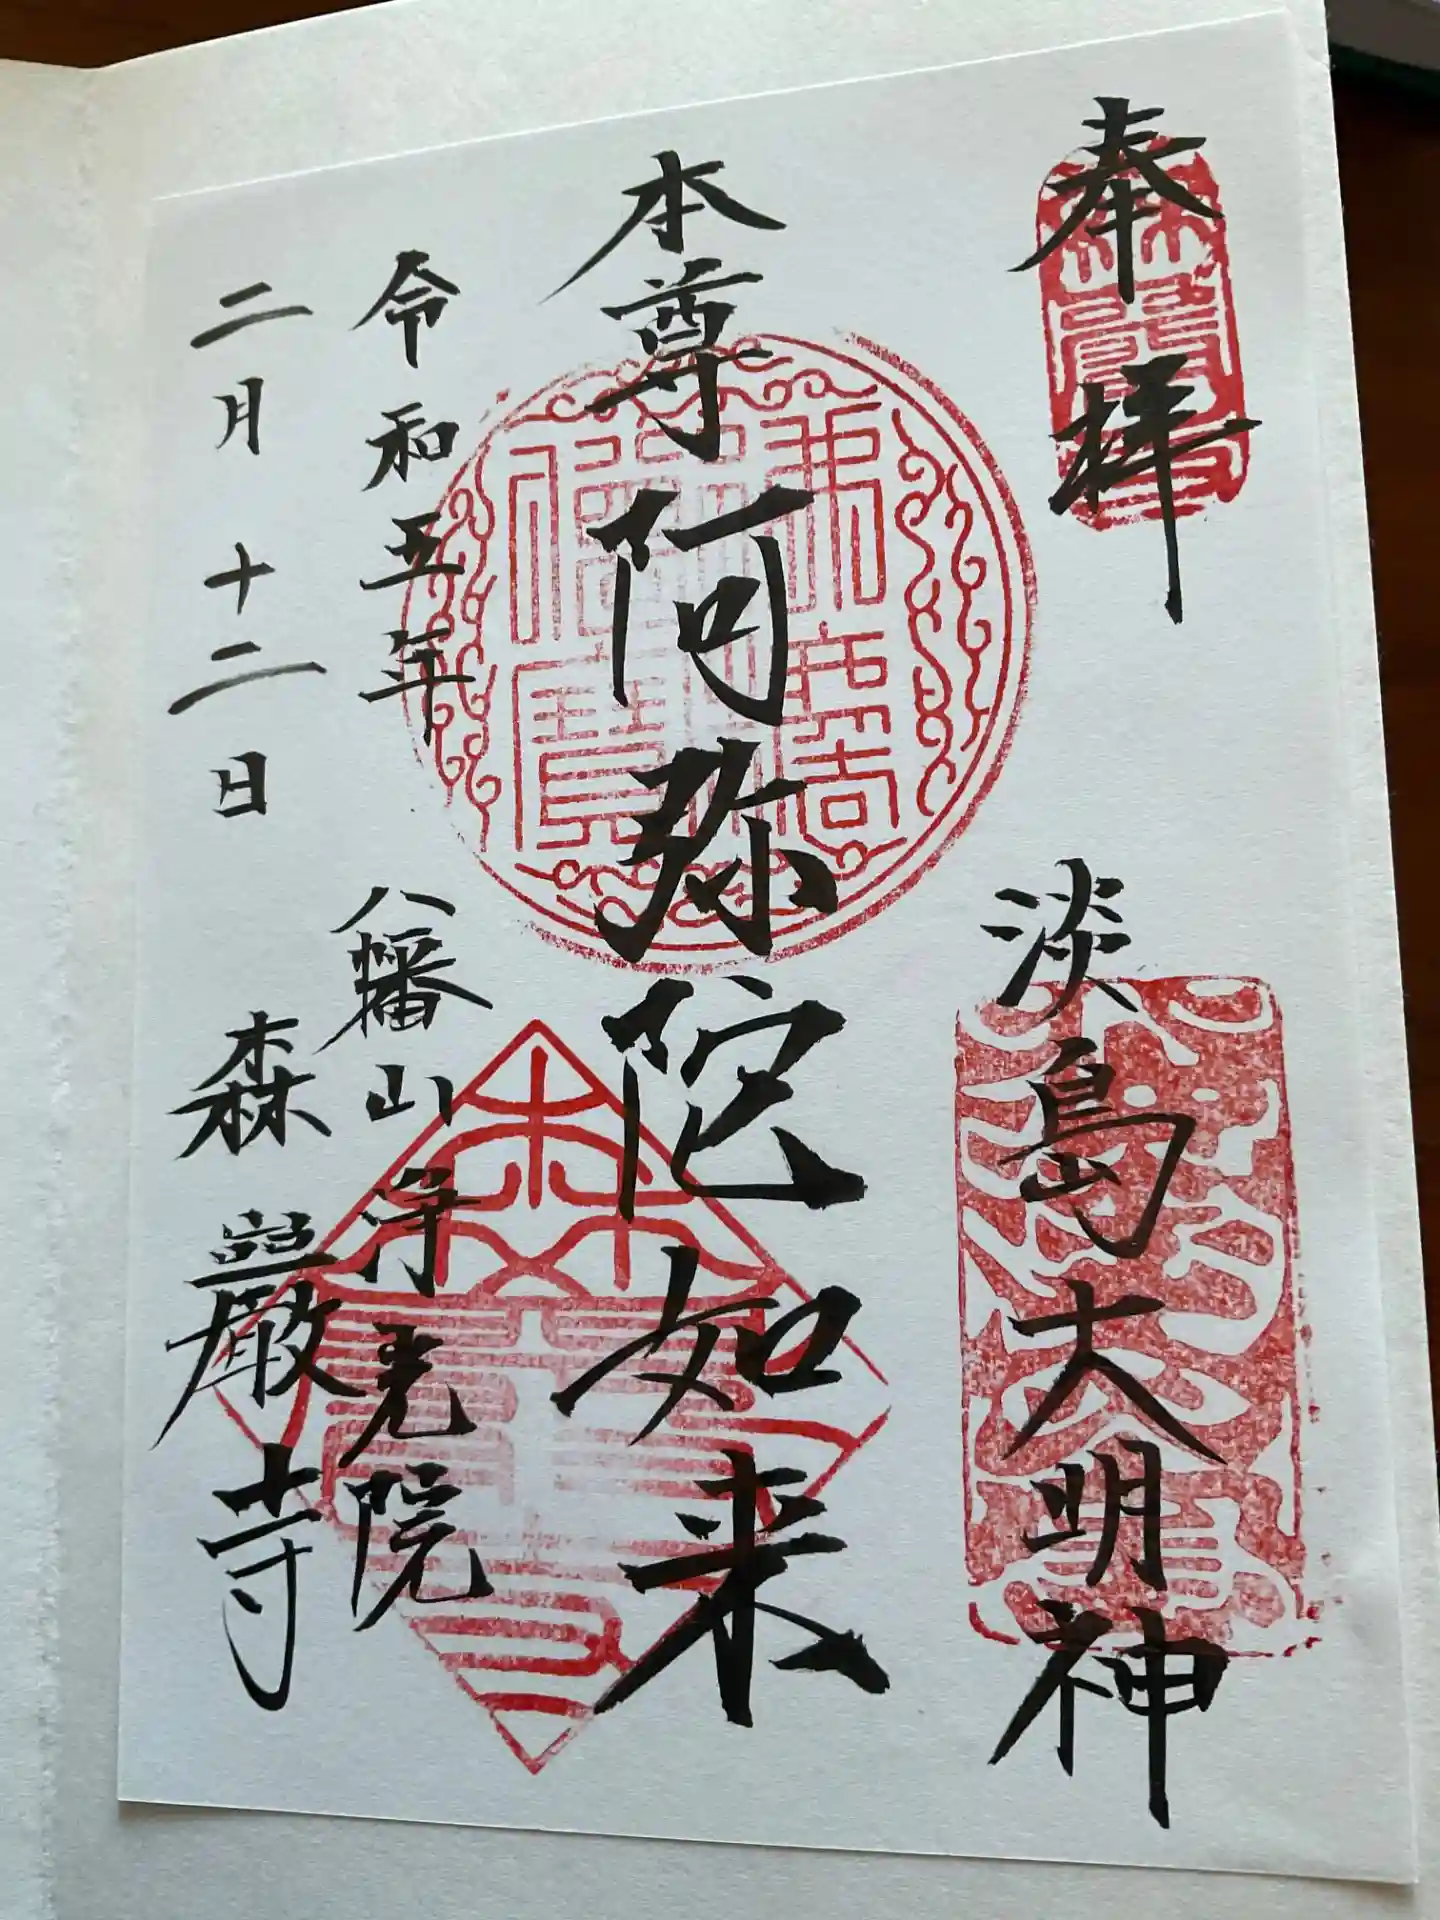 奉拝
淡島大明神
本尊阿弥陀如来
令和五年
二月十二日
八幡山浄光院
森巌寺